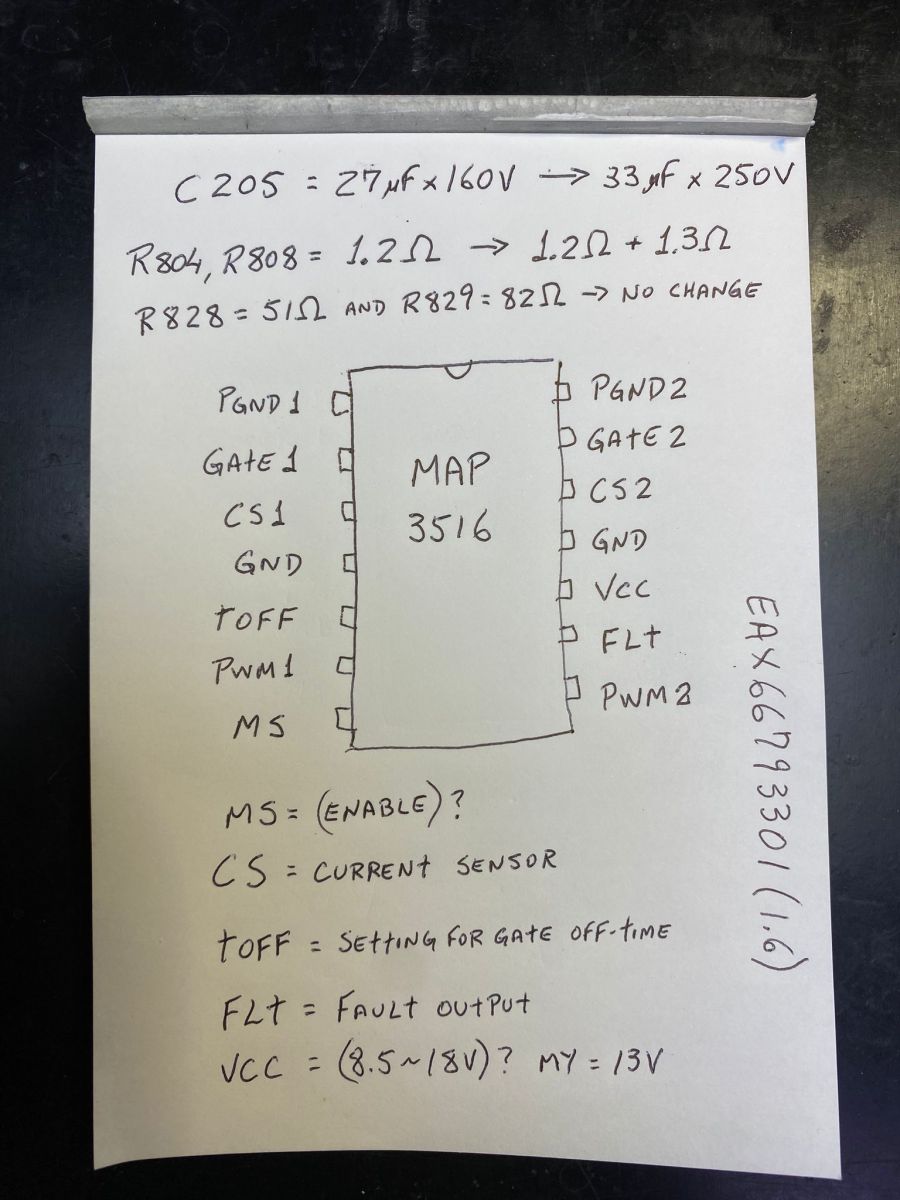 C205 = 27µF x 160V → 33µF x 250V
R804, R808 = 1.2Ω → 1.2Ω + 1.3Ω
R828 = 51Ω AND R829 = 82Ω → NO CHANGE
PGND1
GATE1
CS1
GND
TOFF
PWM1
MS
MAP
3516
PGND2
GATE2
CS2
GND
VCC
FLT
PWM2
MS = (ENABLE)?
CS = CURRENT SENSOR
TOFF = SETTING FOR GATE OFF-TIME
FLT = FAULT OUTPUT
VCC = (8.5~18V)? MY = 13V
EAX66793301 (1.6)